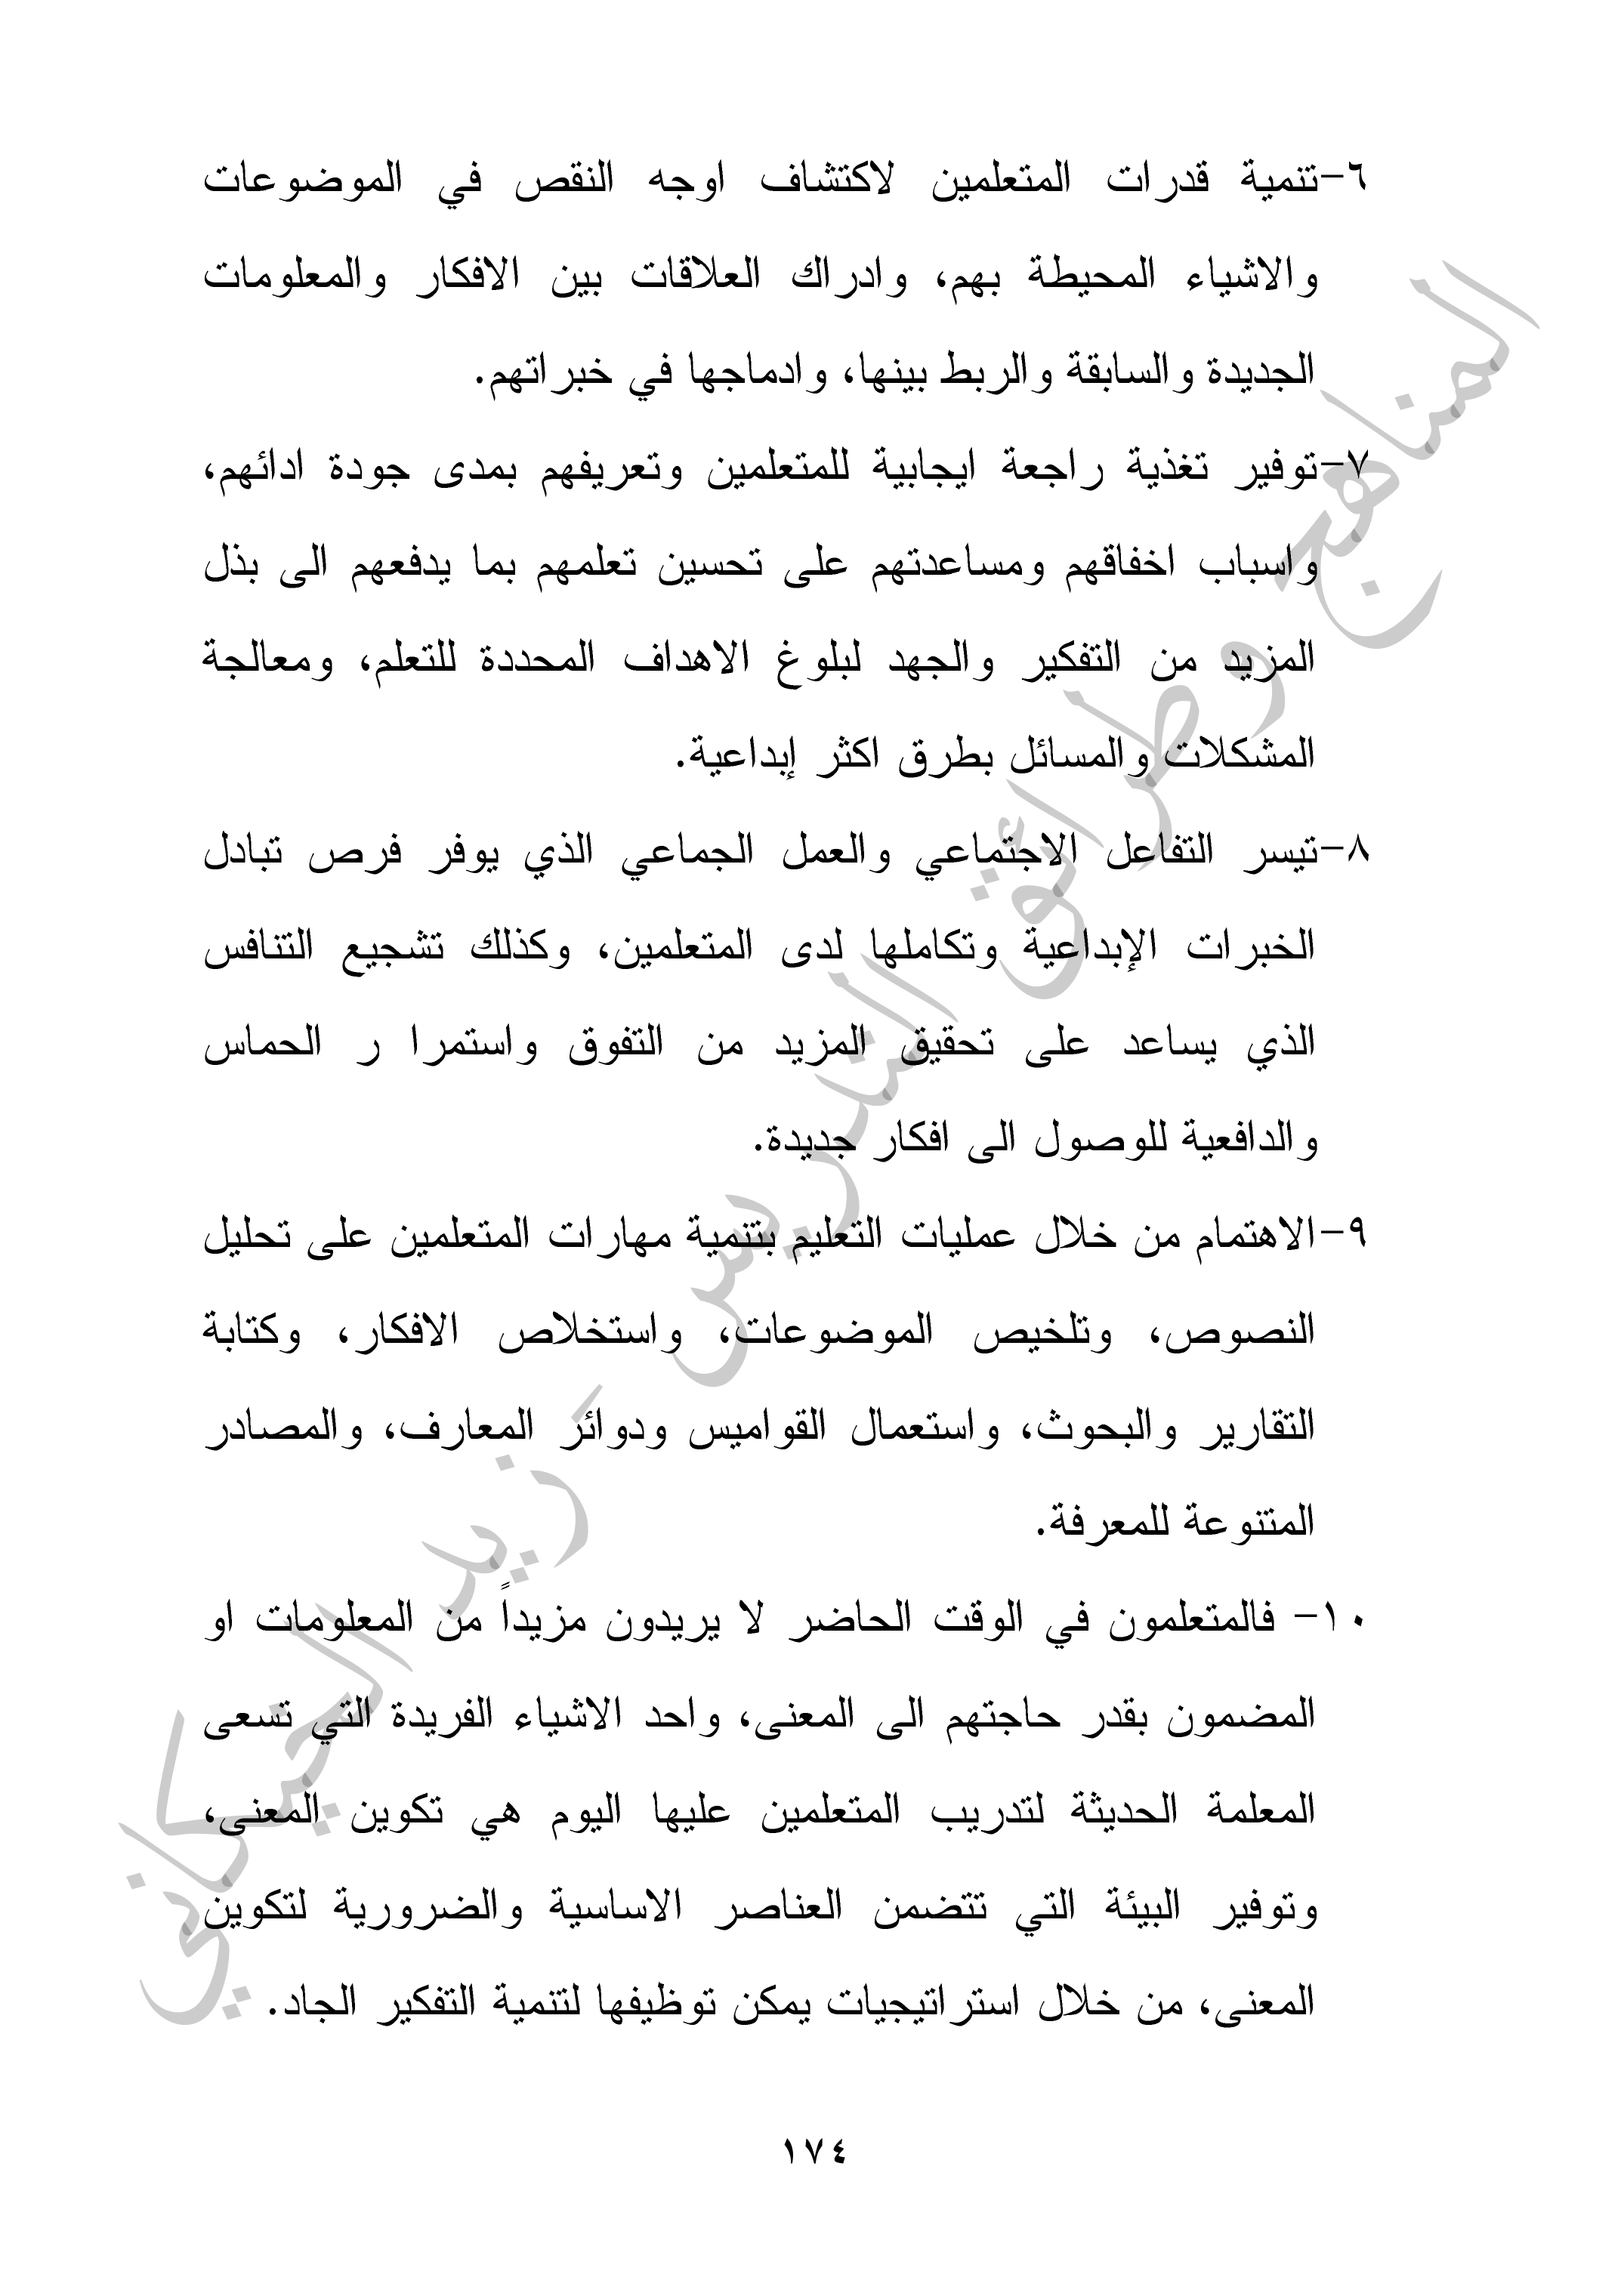 ٦-تنمية قدرات المتعلمين لاكتشاف اوجه النقص في الموضوعات
والاشياء المحيطة بهم، وادراك العلاقات بين الافكار والمعلومات
الجديدة والسابقة والربط بينها، وادماجها في خبراتهم.
٧-توفير تغذية راجعة ايجابية للمتعلمين وتعريفهم بمدى جودة ادائهم،
واسباب اخفاقهم ومساعدتهم على تحسين تعلمهم بما يدفعهم الى بذل
المزيد من التفكير والجهد لبلوغ الاهداف المحددة للتعلم، ومعالجة
المشكلات والمسائل بطرق اكثر إبداعية.
٨-تيسر التفاعل الاجتماعي والعمل الجماعي الذي يوفر فرص تبادل
الخبرات الإبداعية وتكاملها لدى المتعلمين، وكذلك تشجيع التنافس
الذي يساعد على تحقيق المزيد من التفوق واستمرا ر الحماس
والدافعية للوصول الى افكار جديدة.
٩-الاهتمام من خلال عمليات التعليم بتنمية مهارات المتعلمين على تحليل
النصوص، وتلخيص الموضوعات، واستخلاص الافكار، وكتابة
التقارير والبحوث، واستعمال القواميس ودوائر المعارف، والمصادر
المتنوعة للمعرفة.
١٠- فالمتعلمون في الوقت الحاضر لا يريدون مزيداً من المعلومات او
المضمون بقدر حاجتهم الى المعنى، واحد الاشياء الفريدة التي تسعى
المعلمة الحديثة لتدريب المتعلمين عليها اليوم هي تكوين المعنى،
وتوفير البيئة التي تتضمن العناصر الاساسية والضرورية لتكوين
المعنى، من خلال استراتيجيات يمكن توظيفها لتنمية التفكير الجاد.
١٧٤
المناهج وطرائق التدريس - زيد الخيكاني